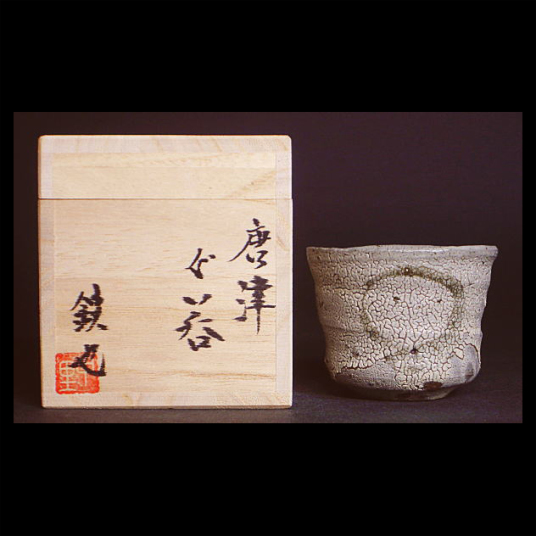 唐津
ぐい呑
鉄也